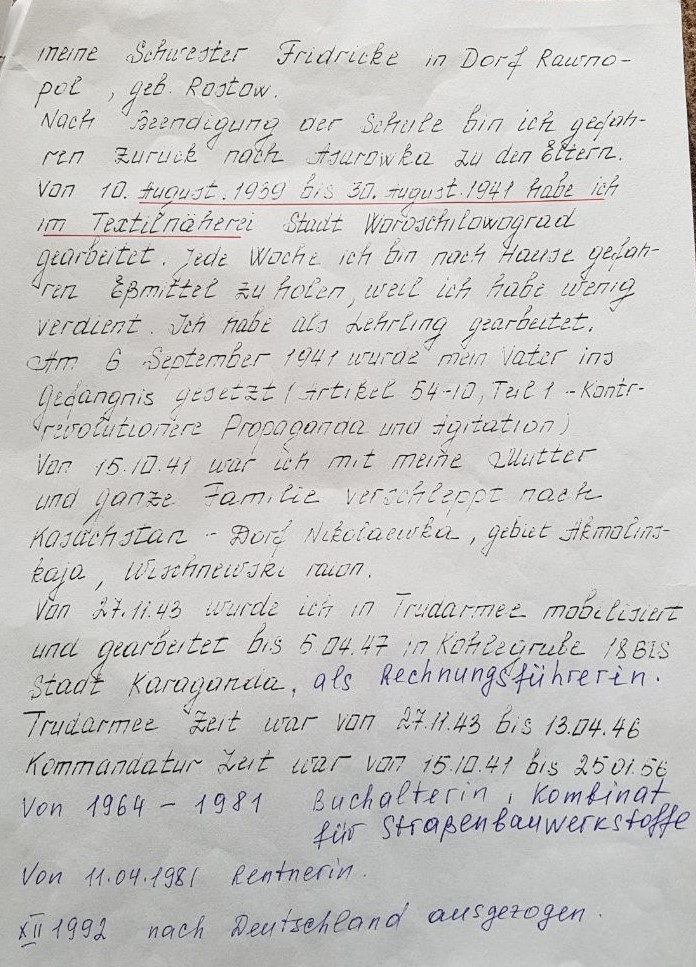 meine Schwester Fridricke in Dorf Rawno-
pol, geb. Rostow.
Nach Beendigung der Schule bin ich gefah-
ren zurück nach Asarowka zu den Eltern.
Von 10. August. 1939 bis 30. August. 1941 habe ich
im Textilnäherei Stadt Woroschilowograd
gearbeitet. Jede Woche ich bin nach Hause gefah-
ren Eßmittel zu holen, weil ich habe wenig
verdient. Ich habe als Lehrling gearbeitet.
Am 6 September 1941 wurde mein Vater ins
Gefängnis gesetzt (Artikel 54-10, Teil 1 - Kontr-
revolutionere Propaganda und Agitation)
Von 15.10.41 war ich mit meine Mutter
und ganze Familie verschleppt nach
Kasachstan - Dorf Nikolaewka, gebiet Akmolins-
kaja, Wischnewski raion.
Von 27.11.43 wurde ich in Trudarmee mobilisiert
und gearbeitet bis 5.04.47 in Kohlegrube 18 BIS
Stadt Karaganda, als Rechnungsführerin.
Trudarmee Zeit war von 27.11.43 bis 13.04.46
Kommandatur Zeit war von 15.10.41 bis 25.01.56
Von 1964 - 1981 Buchalterin, Kombinat
für Straßenbauwerkstoffe
Von 11.04.1981 Rentnerin.
XII 1992 nach Deutschland ausgezogen.